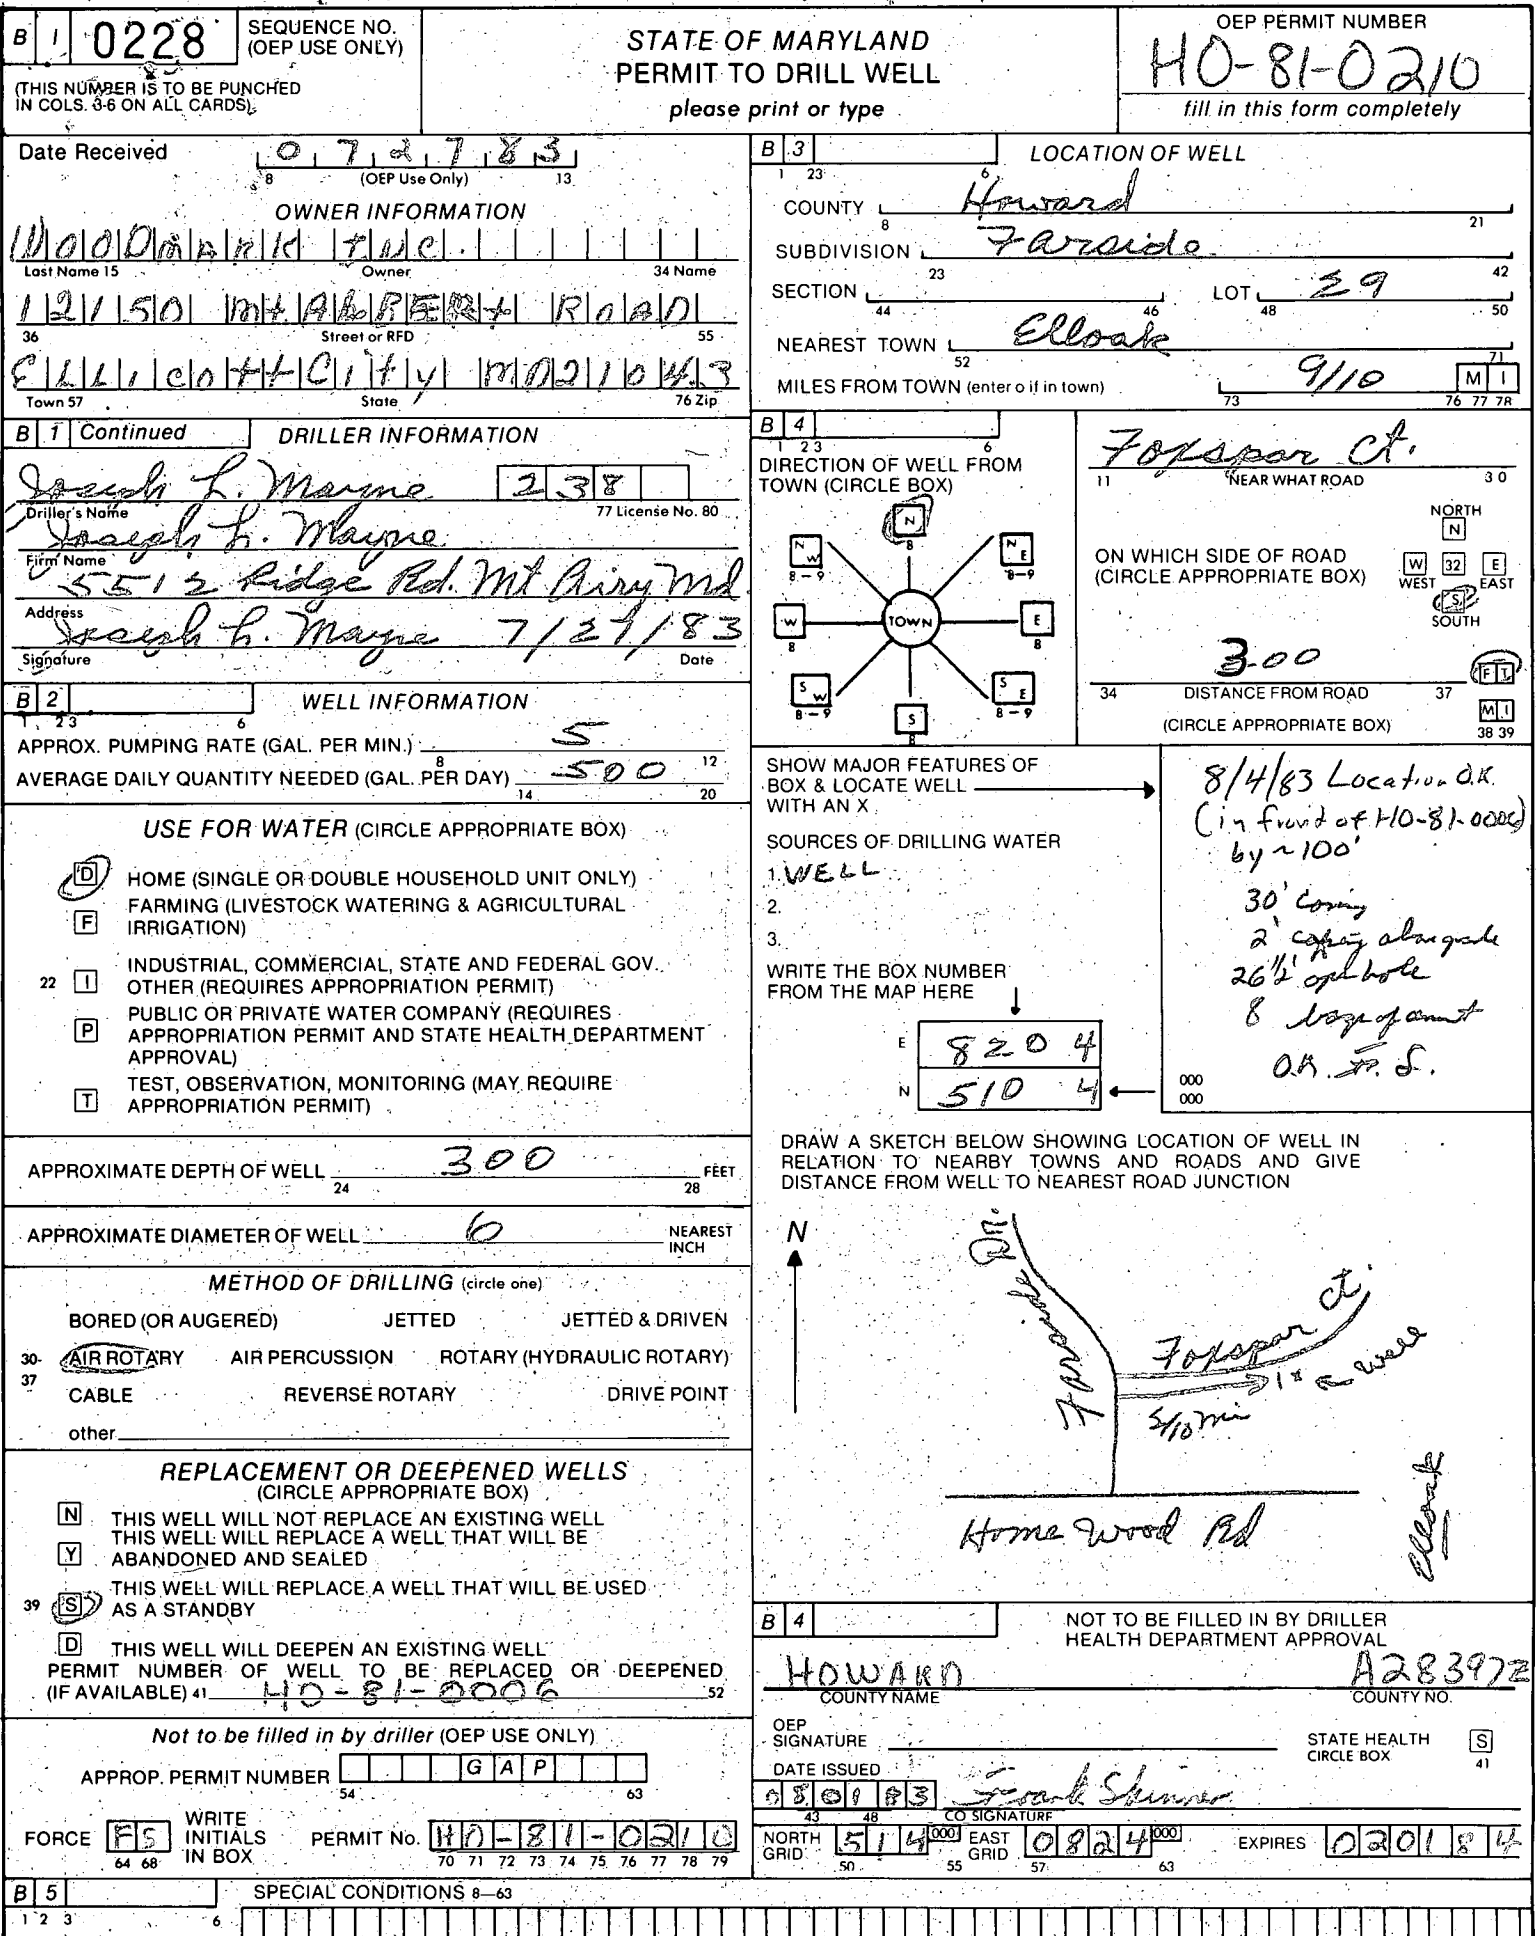 B 1 0228 SEQUENCE NO. (OEP USE ONLY)
(THIS NUMBER IS TO BE PUNCHED
IN COLS. 3-6 ON ALL CARDS)
STATE OF MARYLAND
PERMIT TO DRILL WELL
please print or type
OEP PERMIT NUMBER
HO-81-0210
fill in this form completely
Date Received 072783
8 (OEP Use Only) 13
OWNER INFORMATION
WOODMARK INC.
Last Name 15 Owner 34 Name
12150 ROAD
36 Street or RFD 55
ELLICOTT City MD 21043
Town 57 State 76 Zip
B 1 Continued DRILLER INFORMATION
Joseph L. Mayne 238
Driller's Name 77 License No. 80
Joseph L. Mayne
Firm Name
5512 Ridge Rd. Mt Airy Md.
Address
Joseph L. Mayne 7/27/83
Signature Date
B 2 WELL INFORMATION
1 2 3 6
APPROX. PUMPING RATE (GAL. PER MIN.) 5
8 12
AVERAGE DAILY QUANTITY NEEDED (GAL. PER DAY) 500
14 20
USE FOR WATER (CIRCLE APPROPRIATE BOX)
D HOME (SINGLE OR DOUBLE HOUSEHOLD UNIT ONLY)
F FARMING (LIVESTOCK WATERING & AGRICULTURAL
IRRIGATION)
22 I INDUSTRIAL, COMMERCIAL, STATE AND FEDERAL GOV.
OTHER (REQUIRES APPROPRIATION PERMIT)
P PUBLIC OR PRIVATE WATER COMPANY (REQUIRES
APPROPRIATION PERMIT AND STATE HEALTH DEPARTMENT
APPROVAL)
T TEST, OBSERVATION, MONITORING (MAY REQUIRE
APPROPRIATION PERMIT)
APPROXIMATE DEPTH OF WELL 300 FEET
24 28
APPROXIMATE DIAMETER OF WELL 6 NEAREST
INCH
METHOD OF DRILLING (circle one)
BORED (OR AUGERED) JETTED JETTED & DRIVEN
30- AIR ROTARY AIR PERCUSSION ROTARY (HYDRAULIC ROTARY)
37 CABLE REVERSE ROTARY DRIVE POINT
other
REPLACEMENT OR DEEPENED WELLS
(CIRCLE APPROPRIATE BOX)
N THIS WELL WILL NOT REPLACE AN EXISTING WELL
THIS WELL WILL REPLACE A WELL THAT WILL BE
Y ABANDONED AND SEALED
THIS WELL WILL REPLACE A WELL THAT WILL BE USED
39 S AS A STANDBY
D THIS WELL WILL DEEPEN AN EXISTING WELL
PERMIT NUMBER OF WELL TO BE REPLACED OR DEEPENED
(IF AVAILABLE) 41 HO-81-0006 52
Not to be filled in by driller (OEP USE ONLY)
APPROP. PERMIT NUMBER GAP
54 63
FORCE FS WRITE INITIALS IN BOX PERMIT No. HO-81-0210
64 68 70 71 72 73 74 75 76 77 78 79
B 3 LOCATION OF WELL
1 23 6
COUNTY Howard
8 21
SUBDIVISION Farside
23 42
SECTION LOT 29
44 46 48 50
NEAREST TOWN Elloak
52 71
MILES FROM TOWN (enter o if in town) 9/10 M I
73 76 77 78
B 4
1 23 6
DIRECTION OF WELL FROM
TOWN (CIRCLE BOX)
N
8
N W N E
8-9 8-9
W TOWN E
8 8
S W S E
8-9 8-9
S
8
Foxspar Ct.
11 NEAR WHAT ROAD 30
NORTH
N
ON WHICH SIDE OF ROAD
(CIRCLE APPROPRIATE BOX)
W 32 E
WEST EAST
S
SOUTH
300 F T
34 DISTANCE FROM ROAD 37
(CIRCLE APPROPRIATE BOX) M I
38 39
SHOW MAJOR FEATURES OF
BOX & LOCATE WELL
WITH AN X
SOURCES OF DRILLING WATER
1. WELL
2.
3.
WRITE THE BOX NUMBER
FROM THE MAP HERE
E 8204
N 510 4
000
000
8/4/83 Location O.K.
(in front of HO-81-0006)
by ~100'
30' casing
2' casing above grade
26 1/2' open hole
8 bags of cement
O.K. F. S.
DRAW A SKETCH BELOW SHOWING LOCATION OF WELL IN
RELATION TO NEARBY TOWNS AND ROADS AND GIVE
DISTANCE FROM WELL TO NEAREST ROAD JUNCTION
N
Farside Dr.
Foxspar Ct.
X ← well
5/10 mi
Home Wood Rd
Elloak
B 4 NOT TO BE FILLED IN BY DRILLER
HEALTH DEPARTMENT APPROVAL
HOWARD A28397
COUNTY NAME COUNTY NO.
OEP
SIGNATURE
STATE HEALTH S
CIRCLE BOX 41
DATE ISSUED
080183 Frank Skinner
43 48 CO SIGNATURE
NORTH GRID 514 000 EAST GRID 0824 000 EXPIRES 020184
50 55 57 63
B 5 SPECIAL CONDITIONS 8-63
1 2 3 6